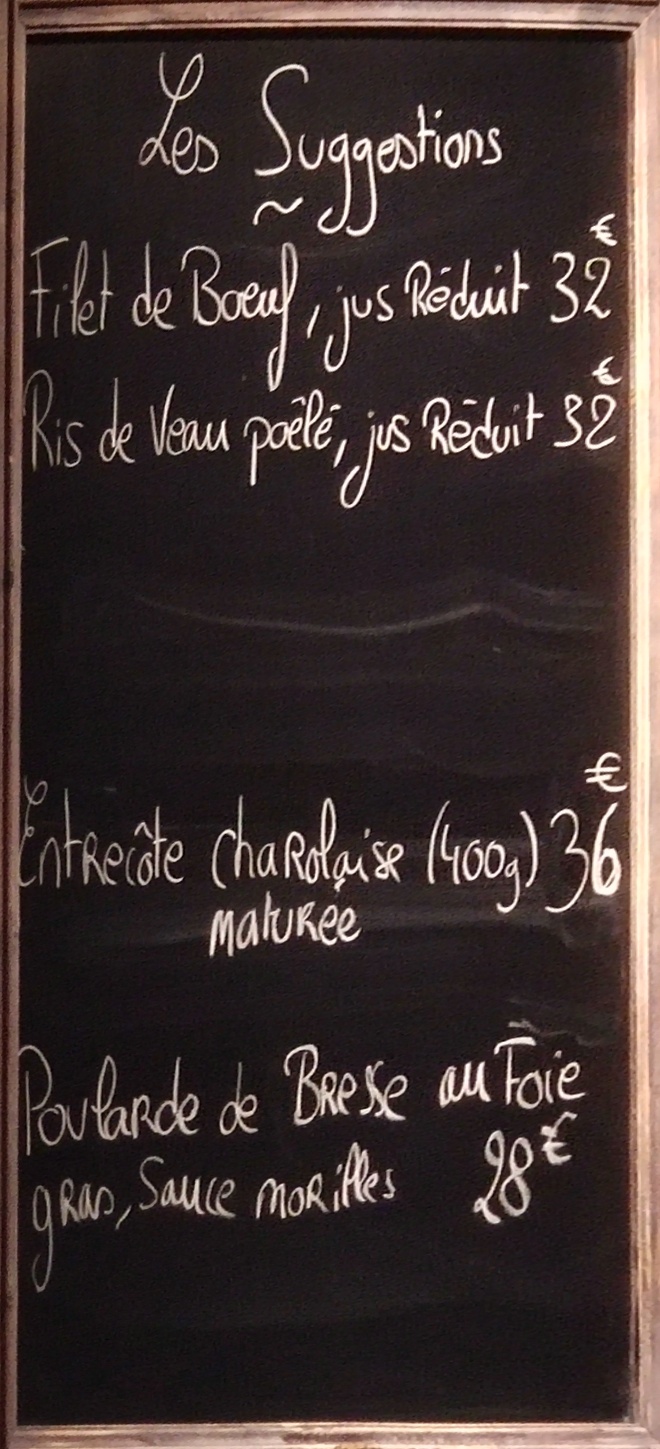 Les Suggestions
~
Filet de Boeuf, jus Réduit 32€
Ris de Veau poêlé, jus Réduit 32€
Entrecôte charolaise (400g) 36€
maturée
Poularde de Bresse au Foie
gras, Sauce morilles 28€